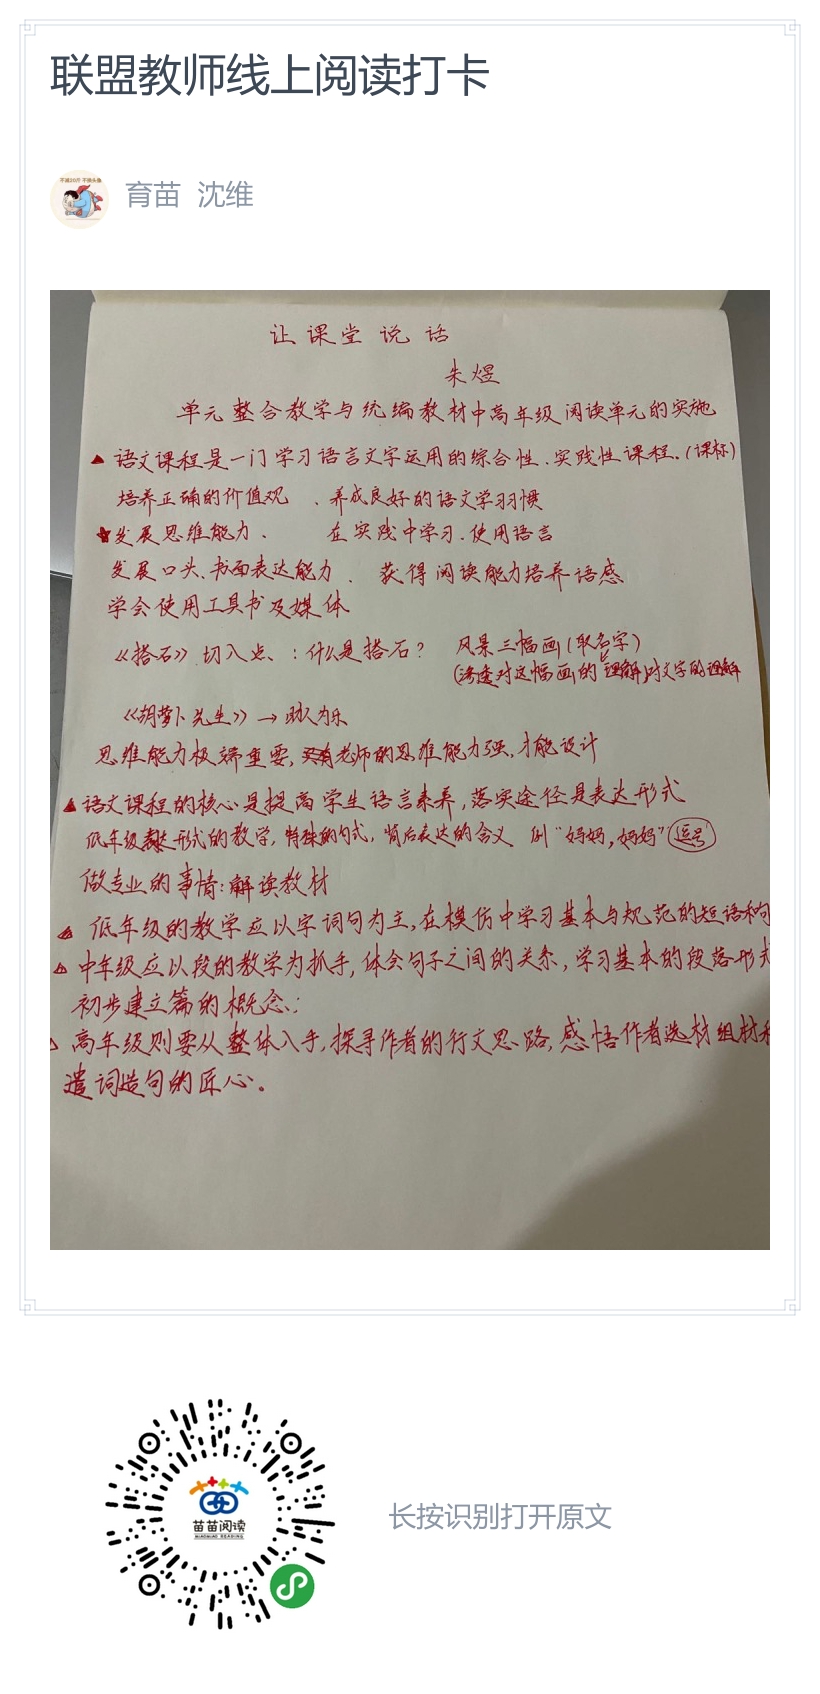 联盟教师线上阅读打卡
不减20斤 不换头像
育苗 沈维
让课堂说话
朱煜
单元整合教学与统编教材中高年级阅读单元的实施
▲ 语文课程是一门学习语言文字运用的综合性、实践性课程。(课标)
培养正确的价值观 、养成良好的语文学习习惯
★发展思维能力、 在实践中学习、使用语言
发展口头、书面表达能力 、 获得阅读能力培养语感
学会使用工具书及媒体
《搭石》切入点、:什么是搭石? 风景三幅画(取名字)
对这幅画的理解)对文字的理解
《胡萝卜先生》→助人为乐
思维能力极端重要,只有老师的思维能力强,才能设计
▲语文课程的核心是提高学生语言素养,落实途径是表达形式
低年级表达形式的教学,特殊的句式,背后表达的含义 例“妈妈,妈妈”逗号
做专业的事情:解读教材
△ 低年级的教学应以字词句为主,在模仿中学习基本与规范的短语和句
△ 中年级应以段的教学为抓手,体会句子之间的关系,学习基本的段落形式
初步建立篇的概念;
△ 高年级则要从整体入手,探寻作者的行文思路,感悟作者选材组材和
遣词造句的匠心。
苗苗阅读
MIAOMIAO READING
长按识别打开原文